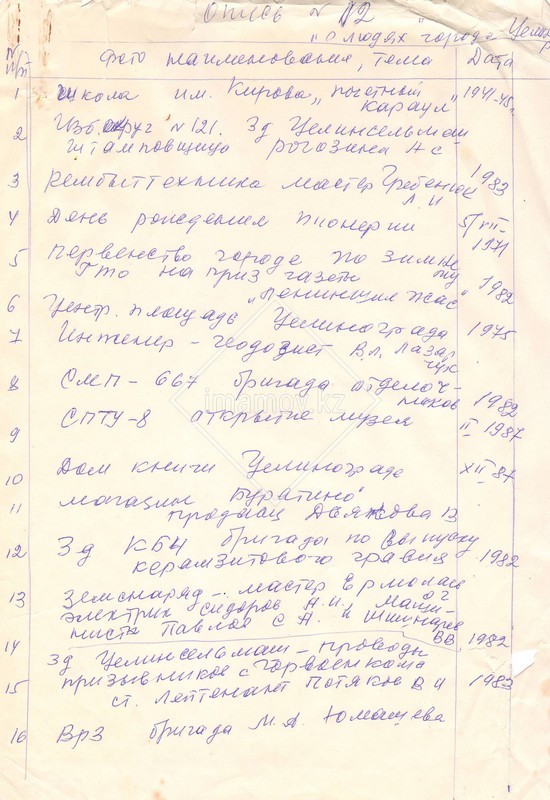 Опись № 12
"О людях" города Целин
№ п/п Фото наименования, тема Дата
1 Школа им. Кирова "почетный 1941-45г
караул"
2 Изб. округ № 121. Зд Целинсельмаш
штамповщица Рогозина А с
3 Ремвыттехника мастер Гребенюк 1983
Л. И
4 День рождения пионерии 5/VII-
1971
5 Первенство города по зимн
ГТО на приз газеты 1982
"Ленинщил жас"
6 Центр. площадь Целинограда 1975
7 Инженер - геодозист В.Л. Лазар
чук
8 СМП - 667 бригада отделоч-
ников 1982
9 СПТУ-8 открытие музея II 1987
10 Дом книги Целинограде XII 87
11 магазин Буратино"
продавец Дьякова В
12 Зд КБЧ бригады по выпуску
керамзитового гравия 1982
13 Земснаряд - мастер Ермолаев
электрик Сидоров А.И. Маши-
нисты Павлов С А. и
ВВ 1982
14 Зд Целинсельмаш - проводы
призывников с горвоенкома 1983
15 ст. лейтенант Потяков В И
16 Врз бригада М. А. Юмашева
imamov.kz